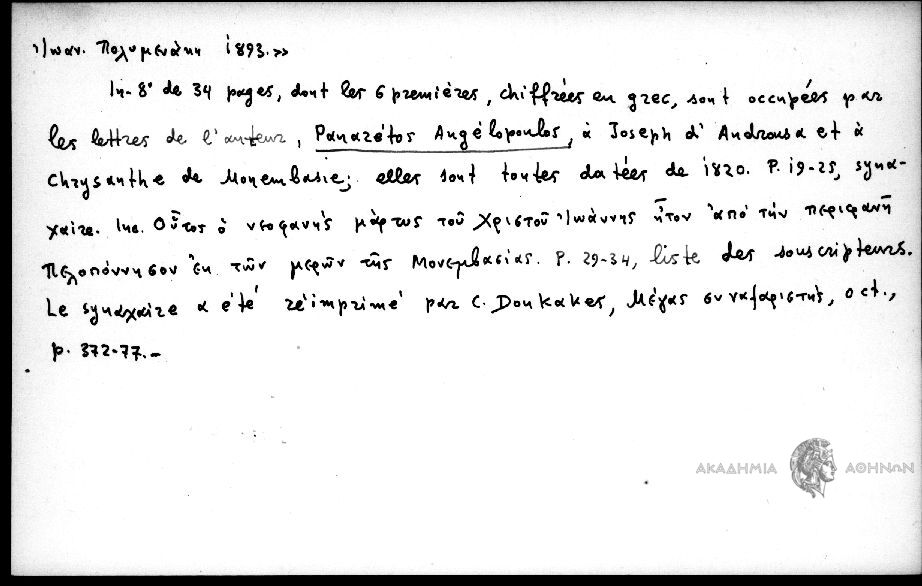 Ἰωαν. Πολυμενάκη 1893.»
In-8° de 34 pages, dont les 6 premières, chiffrées en grec, sont occupées par
les lettres de l'auteur, Panarétos Angélopoulos, à Joseph d'Androusa et à
Chrysanthe de Monembasie; elles sont toutes datées de 1820. P. 19-25, syna-
xaire. Inc. Οὗτος ὁ νεοφανὴς μάρτυς τοῦ Χριστοῦ Ἰωάννης ἦτον ἀπὸ τὴν περιφανῆ
Πελοπόννησον ἐκ τῶν μερῶν τῆς Μονεμβασίας. P. 29-34, liste des souscripteurs.
Le synaxaire a été réimprimé par C. Doukakes, Μέγας συναξαριστής, oct.,
p. 372-77.-
ΑΚΑΔΗΜΙΑ ΑΘΗΝΩΝ